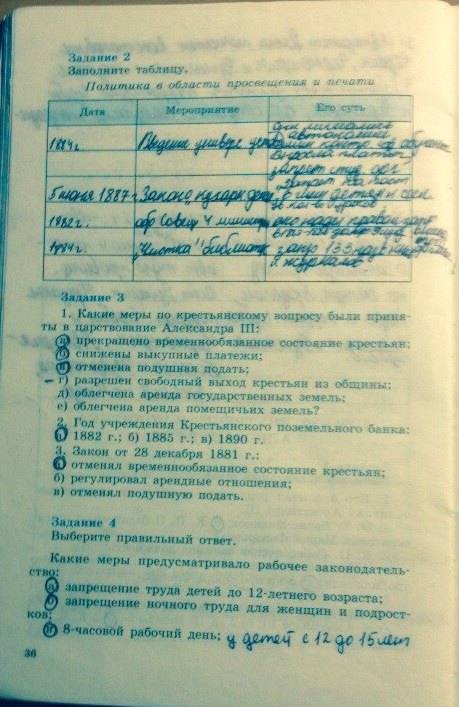 Задание 2
Заполните таблицу.
Политика в области просвещения и печати
Дата Мероприятие Его суть
1884г. Введение универс. уст.
5 июня 1887г. Закон о кухарк. детях
1882г. обр Совещ 4 минист
1884г. "Чистка" библиотек запр 133 наук
и журналов
Задание 3
1. Какие меры по крестьянскому вопросу были приня-
ты в царствование Александра III:
а) прекращено временнообязанное состояние крестьян;
б) снижены выкупные платежи;
в) отменена подушная подать;
г) разрешен свободный выход крестьян из общины;
д) облегчена аренда государственных земель;
е) облегчена аренда помещичьих земель?
2. Год учреждения Крестьянского поземельного банка:
а) 1882 г.; б) 1885 г.; в) 1890 г.
3. Закон от 28 декабря 1881 г.:
а) отменял временнообязанное состояние крестьян;
б) регулировал арендные отношения;
в) отменял подушную подать.
Задание 4
Выберите правильный ответ.
Какие меры предусматривало рабочее законодатель-
ство:
а) запрещение труда детей до 12-летнего возраста;
б) запрещение ночного труда для женщин и подрост-
ков;
в) 8-часовой рабочий день; у детей с 12 до 15 лет
36